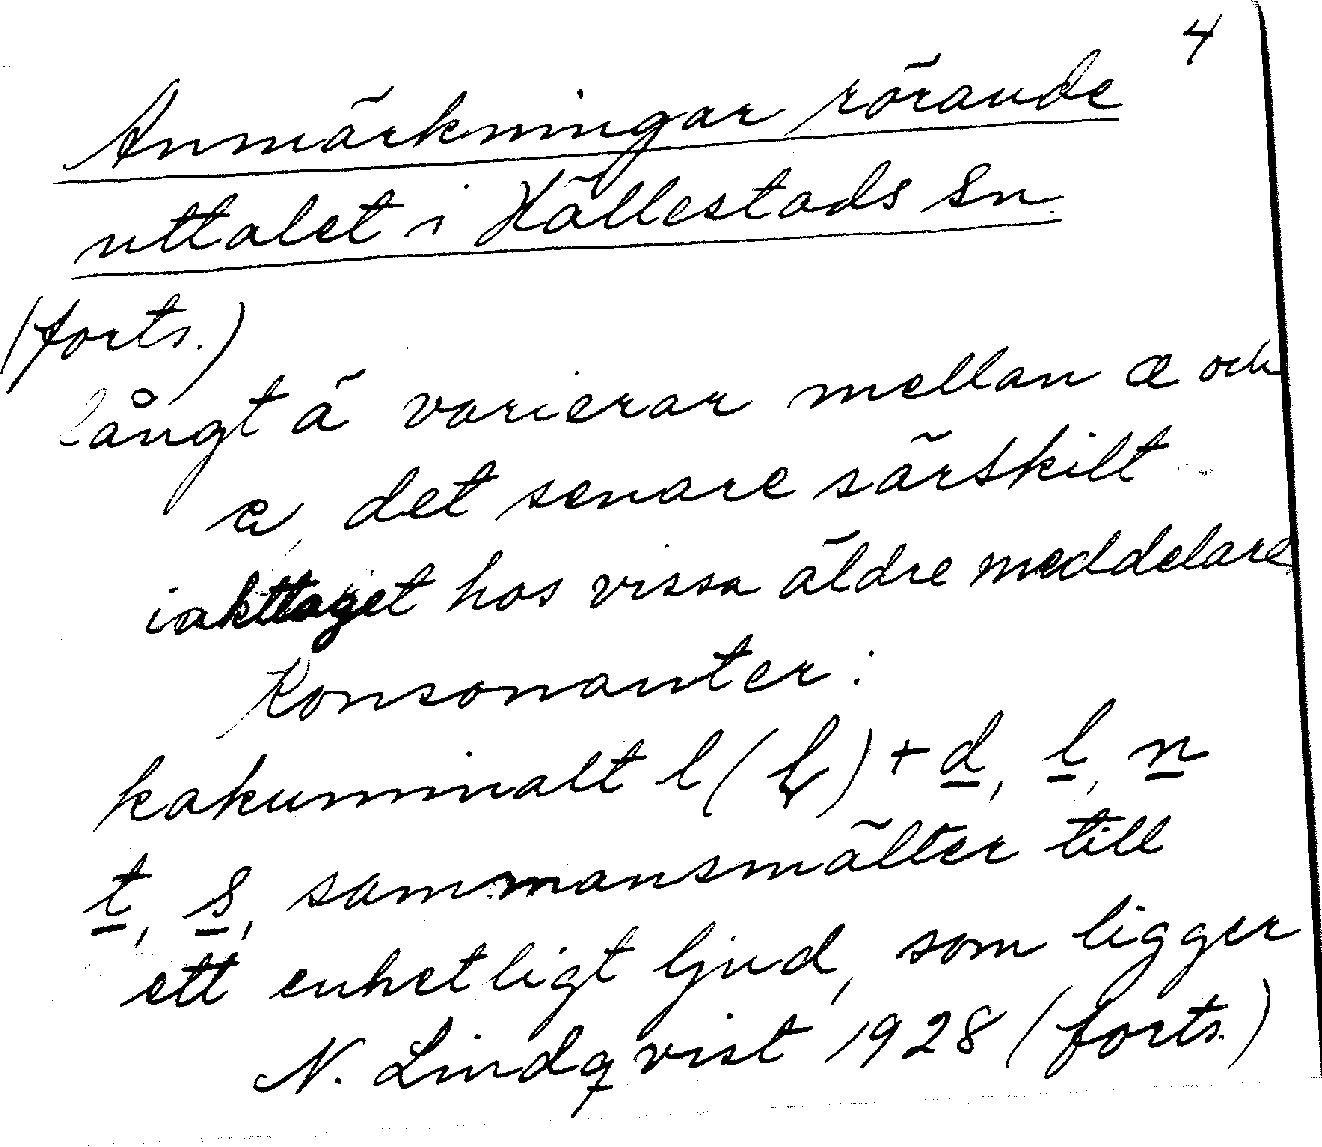 4
Anmärkningar rörande
uttalet i Hällestads sn.
(forts.)
långt ä varierar mellan æ och
e, det senare särskilt
iakttaget hos vissa äldre meddelare
Konsonanter:
kakuminalt l ( ) + d, l, n
t, s, sammansmälter till
ett enhetligt ljud, som ligger
N. Lindqvist 1928 (forts.)